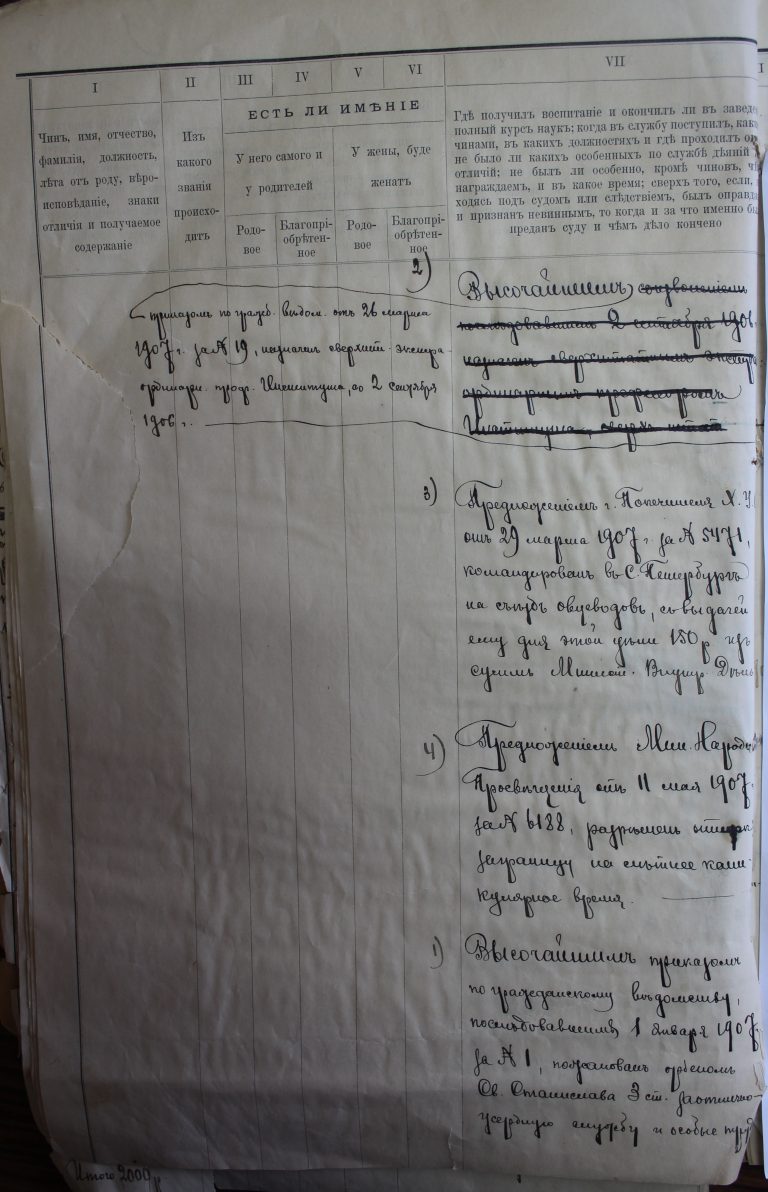 I
II
III
IV
V
VI
VII
I
Чинъ, имя, отчество,
фамилія, должность,
лѣта отъ роду, вѣро-
исповѣданіе, знаки
отличія и получаемое
содержаніе
Изъ
какого
званія
происхо-
дитъ
ЕСТЬ ЛИ ИМѢНІЕ
У него самого и
у родителей
У жены, буде
женатъ
Родо-
вое
Благопрі-
обрѣтен-
ное
Родо-
вое
Благопрі-
обрѣтен-
ное
Гдѣ получилъ воспитаніе и окончилъ ли въ заведе
полный курсъ наукъ; когда въ службу поступилъ, как
чинами, въ какихъ должностяхъ и гдѣ проходилъ он
не было ли какихъ особенныхъ по службѣ дѣяній
отличій; не былъ ли особенно, кромѣ чиновъ, чѣ
награждаемъ, и въ какое время; сверхъ того, если,
ходясь подъ судомъ или слѣдствіемъ, былъ оправда
и признанъ невиннымъ, то когда и за что именно бы
преданъ суду и чѣмъ дѣло кончено
2)
Высочайшимъ соизволеніемъ
послѣдовавшимъ 2 сентября 1906
назначенъ сверхштатнымъ экстра
ординарнымъ профессоромъ
Института, сверхъ штата
приказомъ по гражд. вѣдом. отъ 26 марта
1907 г. за № 19, назначен сверхшт. экстра-
ординарн. проф. Института, со 2 сентября
1906 г.
3)
Предложеніемъ г. Попечителя Х. У.
отъ 29 марта 1907 г. за № 5471,
командированъ въ С. Петербургъ
на съѣздъ овцеводовъ, съ выдачей
ему для этой цѣли 150 р. изъ
суммъ Внутр. Дѣлъ
4)
Предложеніемъ Мин. Народн.
Просвѣщенія отъ 11 мая 1907
за № 6188, разрѣшенъ отпускъ
заграницу на лѣтнее кани-
кулярное время.
1)
Высочайшимъ приказомъ
по гражданскому вѣдомству,
послѣдовавшимъ 1 января 1907
за № 1, пожалованъ орденомъ
Св. Станислава 3 ст. за отлично-
усердную службу и особые труд
Итого 2000 р.